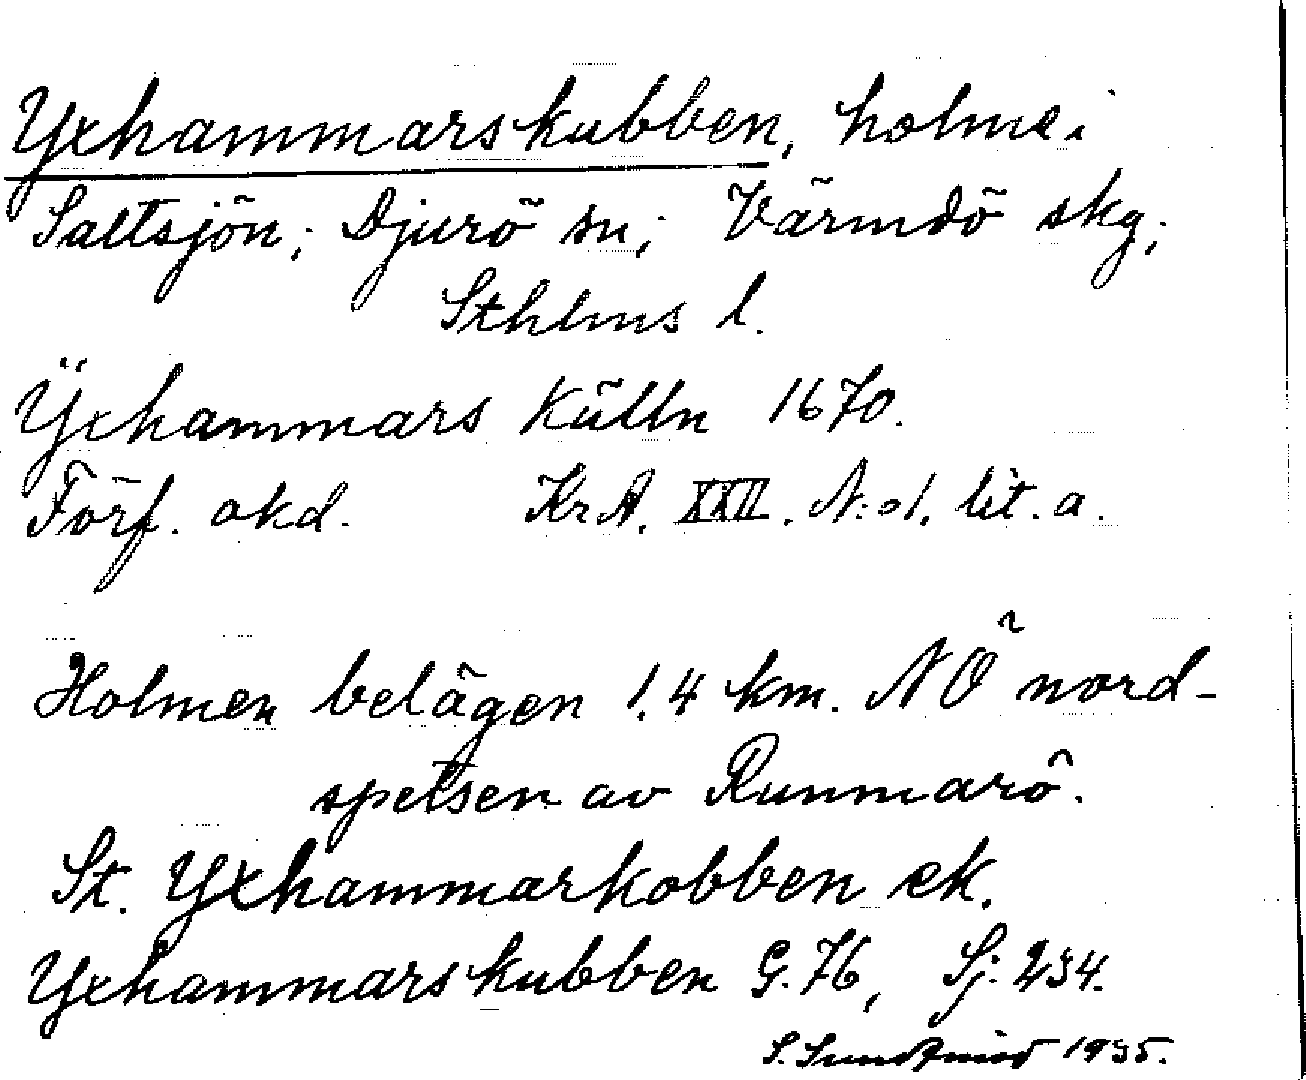 Yxhammarskubben, holme i
Saltsjön; Djurö sn; Värmdö skg;
Sthlms l.
Ÿxhammars Külln 1670.
Förf. okd. Kr A. XXII. N:o 1. lit. a.
Holmen belägen 1,4 km. NÖ nord-
spetsen av Runmarö.
St. Yxhammarkobben ek.
Yxhammarskubben G. 76, Sj: 234.
S. 1935.